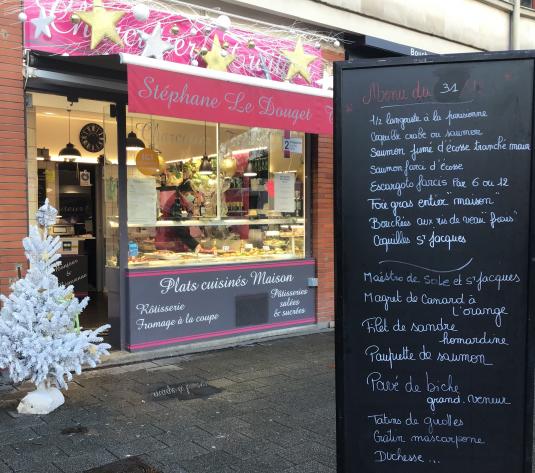 Charcutier Traiteur
Stéphane Le Douget
Plats cuisinés Maison
Rôtisserie
Fromage à la coupe
Pâtisseries
salées
& sucrées
Menu du 31
1/2 langouste à la parisienne
Coquille crabe ou saumon
Saumon fumé d'écosse tranché main
Saumon farci d'écosse
Escargots farcis Par 6 ou 12
Foie gras entier "maison"
Bouchées aux ris de veau "frais"
Coquilles St Jacques
Maestro de Sole et St Jacques
Magret de Canard à
l'orange
Filet de sandre
homardine
Paupiette de saumon
Pavé de biche
grand. veneur
Tatins de girolles
Gratin mascarpone
Duchesse ...